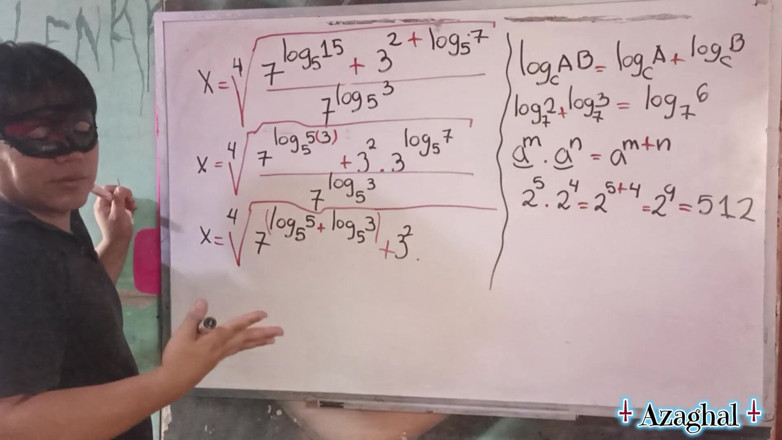 LENA
x = ⁴√((7^(log₅15) + 3^(2 + log₅7)) / 7^(log₅3))
x = ⁴√((7^(log₅5(3)) + 3² . 3^(log₅7)) / 7^(log₅3))
x = ⁴√(7^((log₅5 + log₅3)) + 3² .
log_c AB = log_c A + log_c B
log₇2 + log₇3 = log₇6
a^m . a^n = a^(m+n)
2⁵ . 2⁴ = 2^(5+4) = 2⁹ = 512
Azaghal